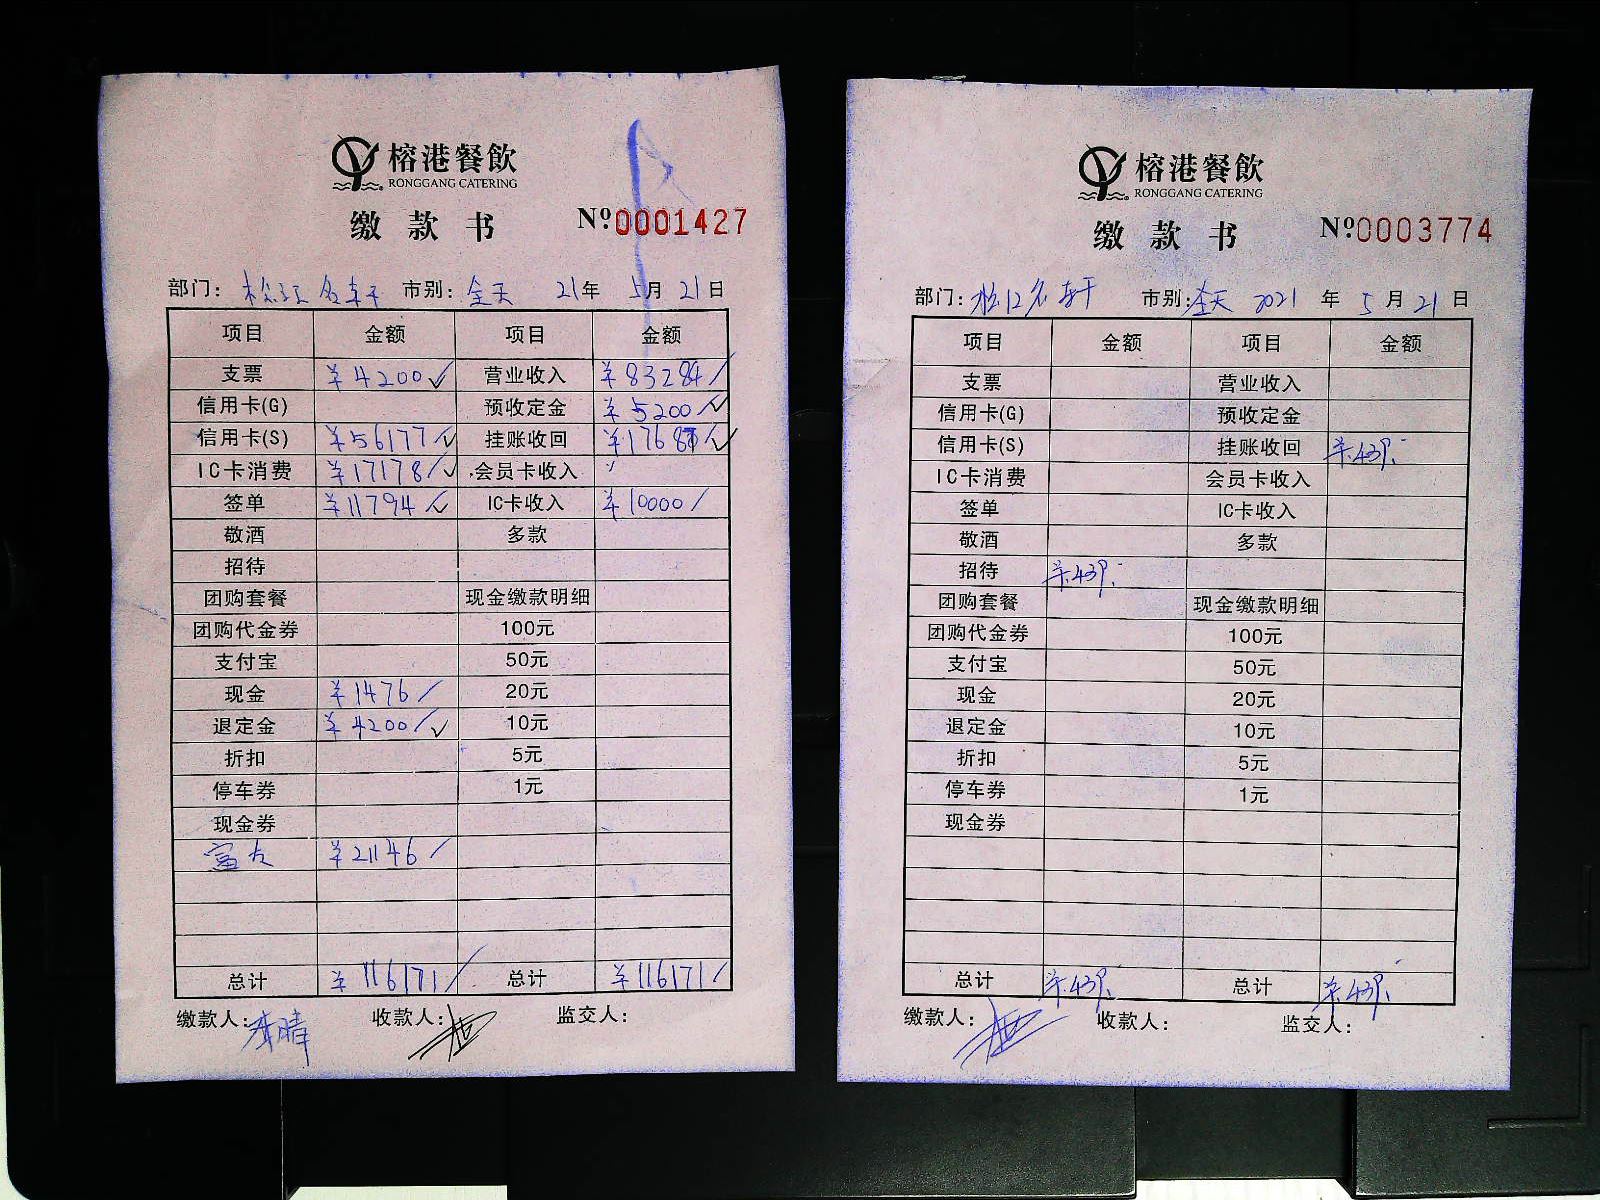 榕港餐飲
RONGGANG CATERING
缴款书 Nº0001427
部门: 松江名轩 市别: 全天 21年 5月 21日
项目 金额 项目 金额
支票 ¥4200 营业收入 ¥83284
信用卡(G) 预收定金 ¥5200
信用卡(S) ¥56177 挂账收回 ¥17687
IC卡消费 ¥17178 会员卡收入
签单 ¥11794 IC卡收入 ¥10000
敬酒 多款
招待
团购套餐 现金缴款明细
团购代金券 100元
支付宝 50元
现金 ¥1476 20元
退定金 ¥4200 10元
折扣 5元
停车券 1元
现金券
富友 ¥21146
总计 ¥116171 总计 ¥116171
缴款人: 收款人: 监交人:
榕港餐飲
RONGGANG CATERING
缴款书 Nº0003774
部门: 松江名轩 市别: 全天 2021 年 5 月 21 日
项目 金额 项目 金额
支票 营业收入
信用卡(G) 预收定金
信用卡(S) 挂账收回 ¥439.-
IC卡消费 会员卡收入
签单 IC卡收入
敬酒 多款
招待 ¥439.-
团购套餐 现金缴款明细
团购代金券 100元
支付宝 50元
现金 20元
退定金 10元
折扣 5元
停车券 1元
现金券
总计 ¥439.- 总计 ¥439.-
缴款人: 收款人: 监交人: